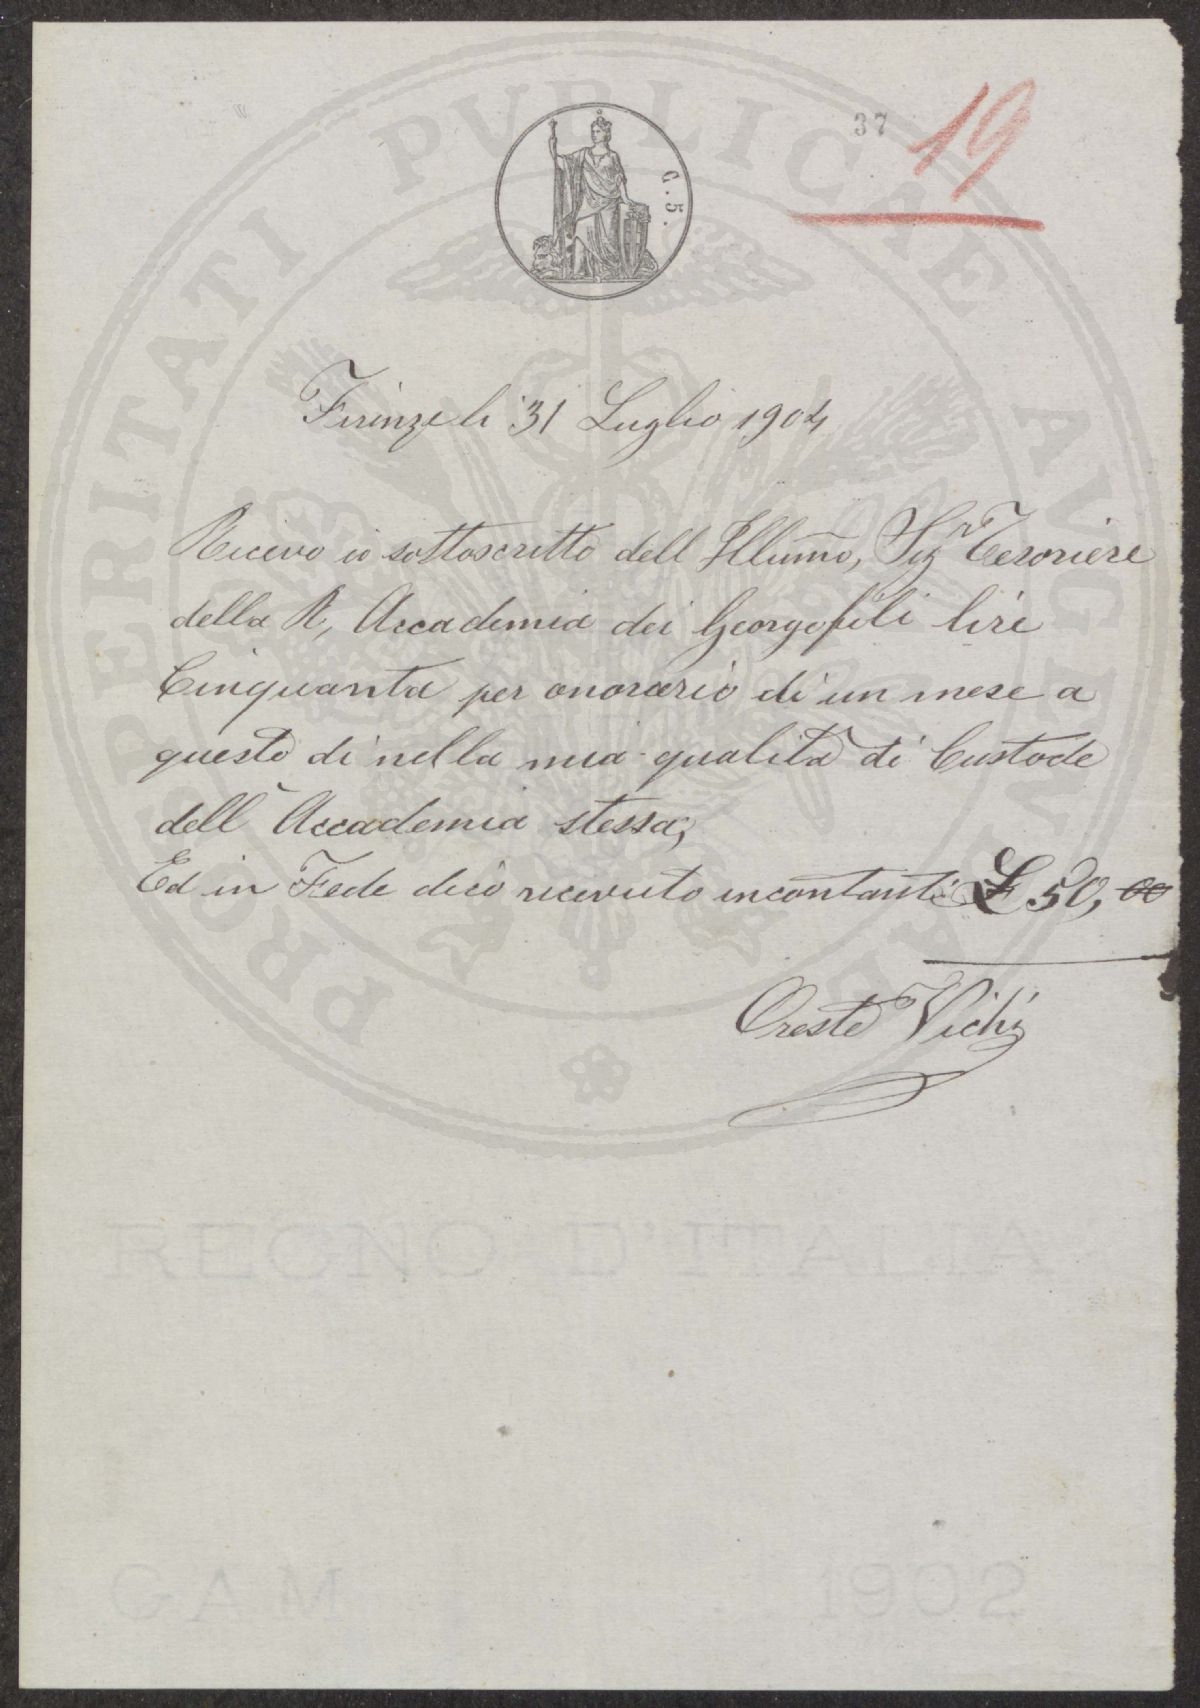 37
19
G. 5.
Firenze lì 31 Luglio 1904
Ricevo io sottoscritto dell Illumo, Sigr Tesoriere
della R, Accademia dei Georgofili lire
Cinquanta per onorario di un mese a
questo dì nella mia qualità di Custode
dell' Accademia stessa,
Ed in Fede dico ricevuto incontanti £ 50,00
Oreste Vichi
PROSPERITATI PVBLICAE AVGENDAE
REGNO D'ITALIA
GAM 1902